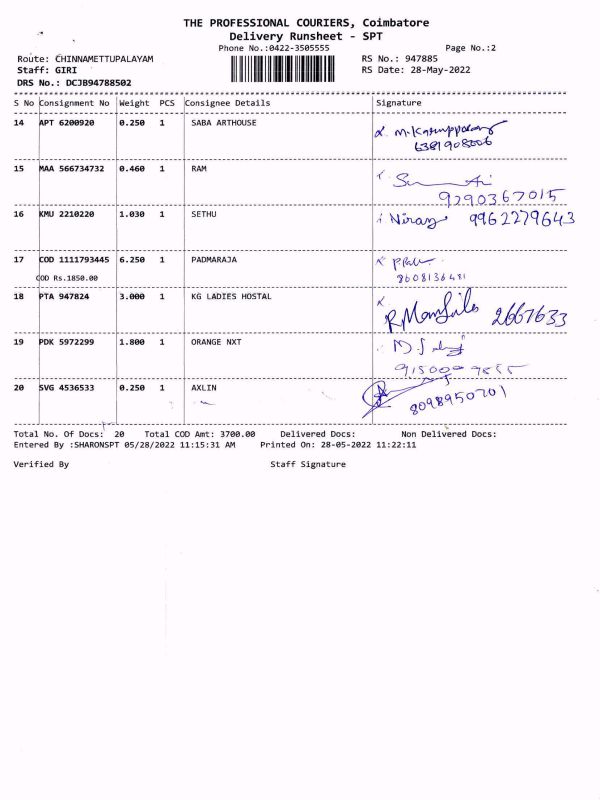 THE PROFESSIONAL COURIERS, Coimbatore
Delivery Runsheet - SPT
Phone No.:0422-3505555 Page No.:2
Route: CHINNAMETTUPALAYAM RS No.: 947885
Staff: GIRI RS Date: 28-May-2022
DRS No.: DCJB94788502
S No Consignment No Weight PCS Consignee Details Signature
14 APT 6200920 0.250 1 SABA ARTHOUSE
6381908006
15 MAA 566734732 0.460 1 RAM
9290367015
16 KMU 2210220 1.030 1 SETHU Niraz 9962279643
17 COD 1111793445 6.250 1 PADMARAJA
COD Rs.1850.00 8608136481
18 PTA 947824 3.000 1 KG LADIES HOSTAL
2667633
19 PDK 5972299 1.800 1 ORANGE NXT
20 SVG 4536533 0.250 1 AXLIN
8098950701
Total No. Of Docs: 20 Total COD Amt: 3700.00 Delivered Docs: Non Delivered Docs:
Entered By :SHARONSPT 05/28/2022 11:15:31 AM Printed On: 28-05-2022 11:22:11
Verified By Staff Signature